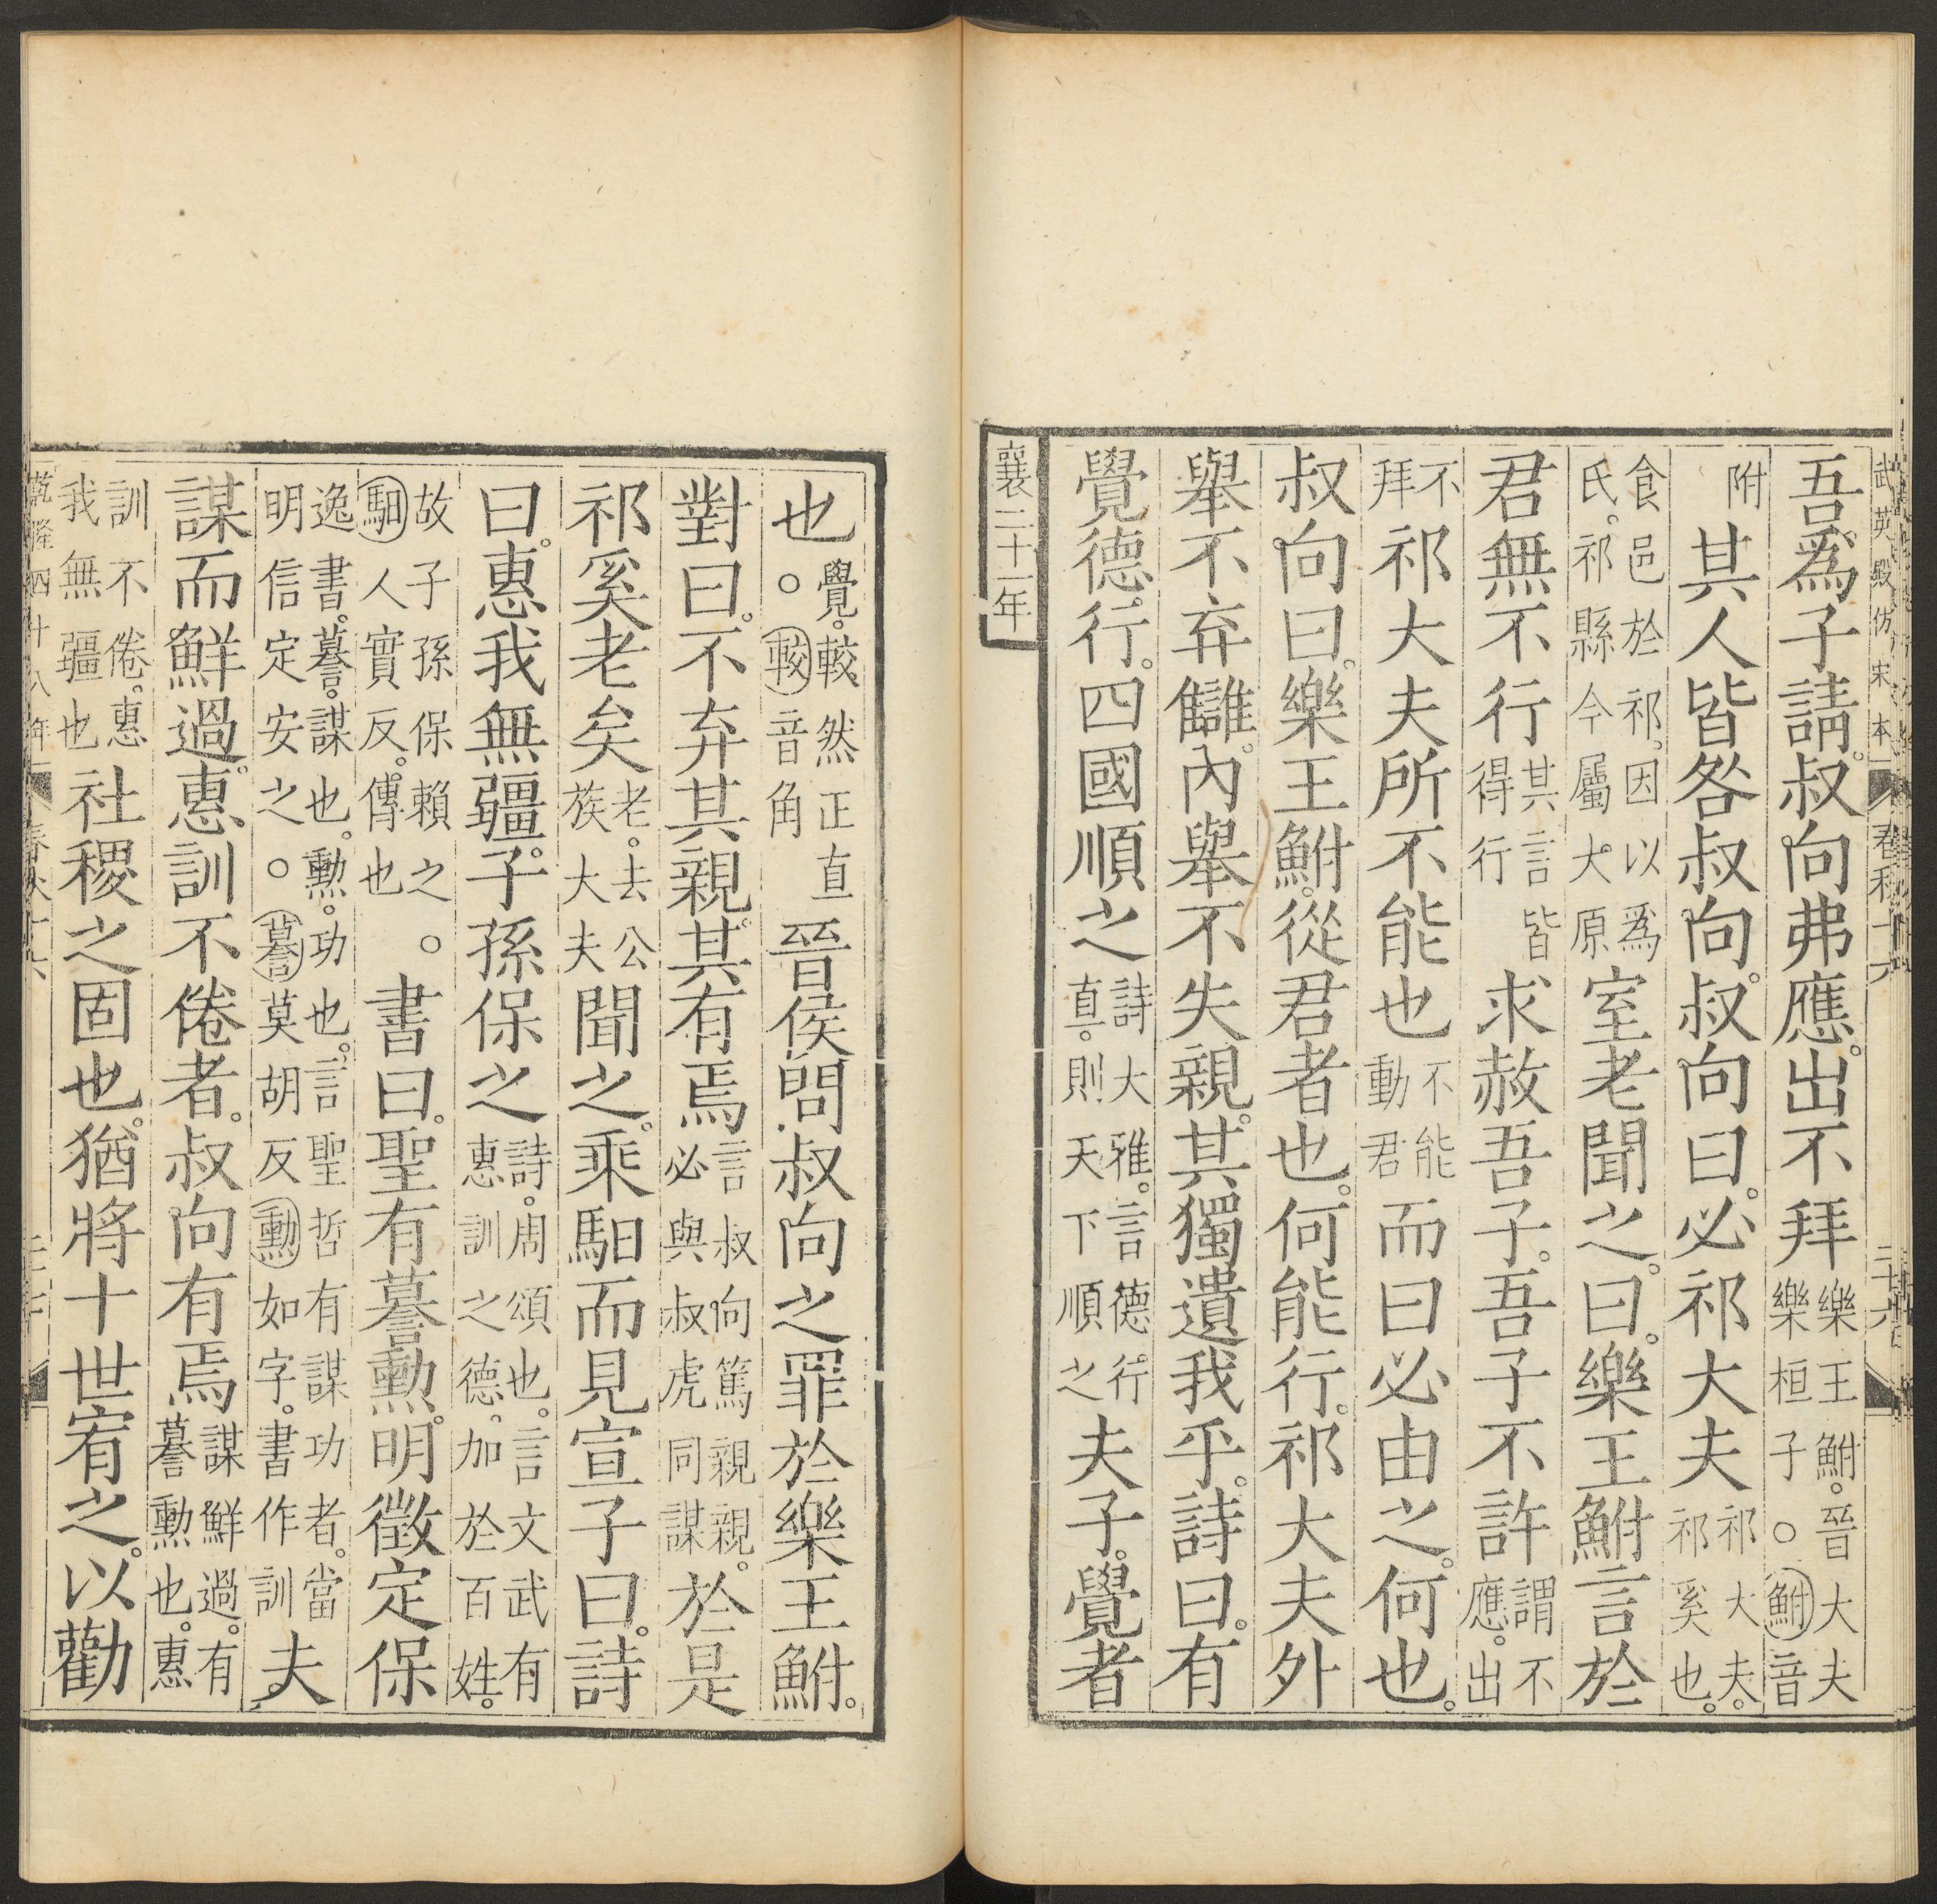 武英殿仿宋本 春秋十六 二十六
吾爲子請。叔向弗應。出不拜樂王鮒。晉大夫樂桓子○鮒音
附其人皆咎叔向。叔向曰。必祁大夫祁大夫。祁奚也。
食邑於祁。因以爲氏。祁縣今屬大原室老聞之。曰。樂王鮒言於
君無不行其言皆得行求赦吾子。吾子不許謂不應。出
不拜祁大夫所不能也不能動君而曰必由之。何也。
叔向曰。樂王鮒。從君者也。何能行。祁大夫外
舉不弃讎。內舉不失親。其獨遺我乎。詩曰。有
覺德行。四國順之詩大雅。言德行直。則天下順之夫子。覺者
襄二十一年
也覺。較然正直○較音角晉侯問叔向之罪於樂王鮒。
對曰。不弃其親。其有焉言叔向篤親親。必與叔虎同謀於是
祁奚老矣老。去公族大夫聞之。乘馹而見宣子曰。詩
曰。惠我無疆。子孫保之詩。周頌也。言文武有惠訓之德。加於百姓。
故子孫保賴之。○馹人實反。傳也書曰。聖有謩勳。明徵定保
逸書。謩。謀也。勳。功也。言聖哲有謀功者。當明信定安之○謩莫胡反勳如字。書作訓夫。
謀而鮮過。惠訓不倦者。叔向有焉謀鮮過。有謩勳也。惠
訓不倦。惠我無疆也社稷之固也。猶將十世宥之。以勸
乾隆四十八年 春秋十六